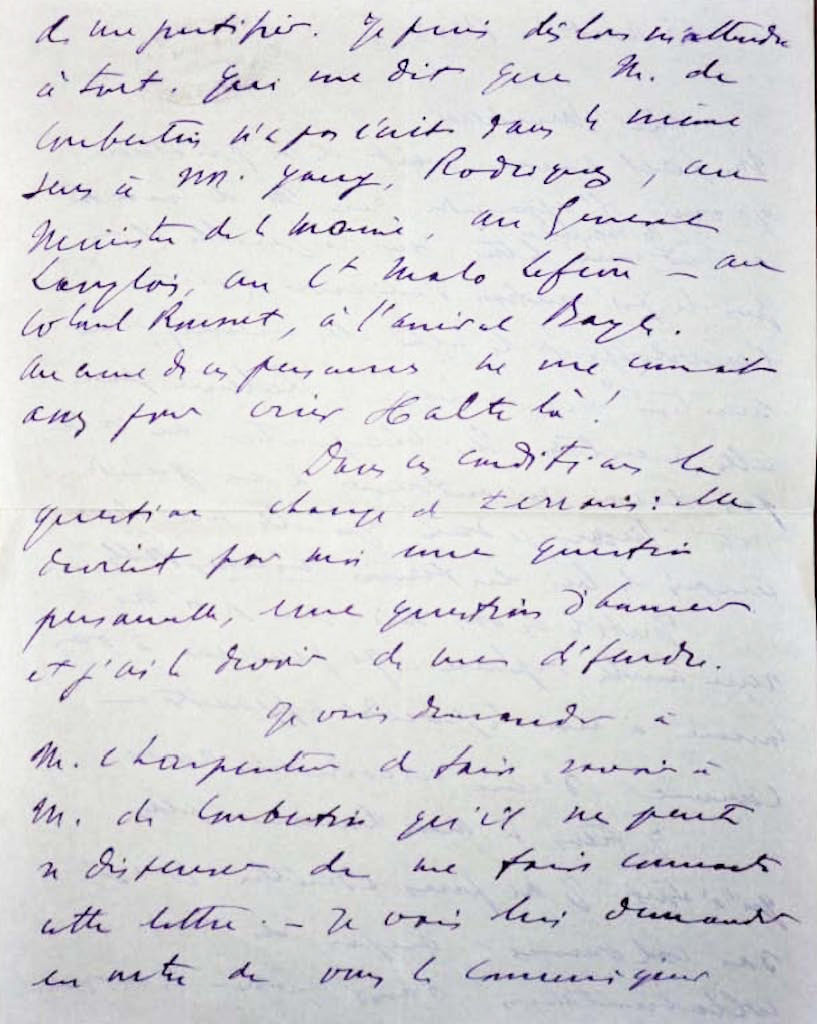 de me justifier. Je puis dès lors m'attendre
à tout. Qui me dit que M. de
Coubertin n'a pas écrit dans le même
sens à MM. Rodrigues, au
Ministre de la marine, au Général
Langlois, au Ct Malo Lefèvre — au
Colonel Rousset, à l'amiral Bayle.
aucune de ces personnes ne me connait
assez pour crier Halte là!
Dans ces conditions la
question change de terrain: elle
devient pour moi une question
personnelle, une question d'honneur
et j'ai le devoir de me défendre.
Je vais demander à
M. Charpentier de faire savoir à
M. de Coubertin qu'il ne peut
se dispenser de me faire connaitre
cette lettre. — Je vais lui demander
en outre de vous le communiquer